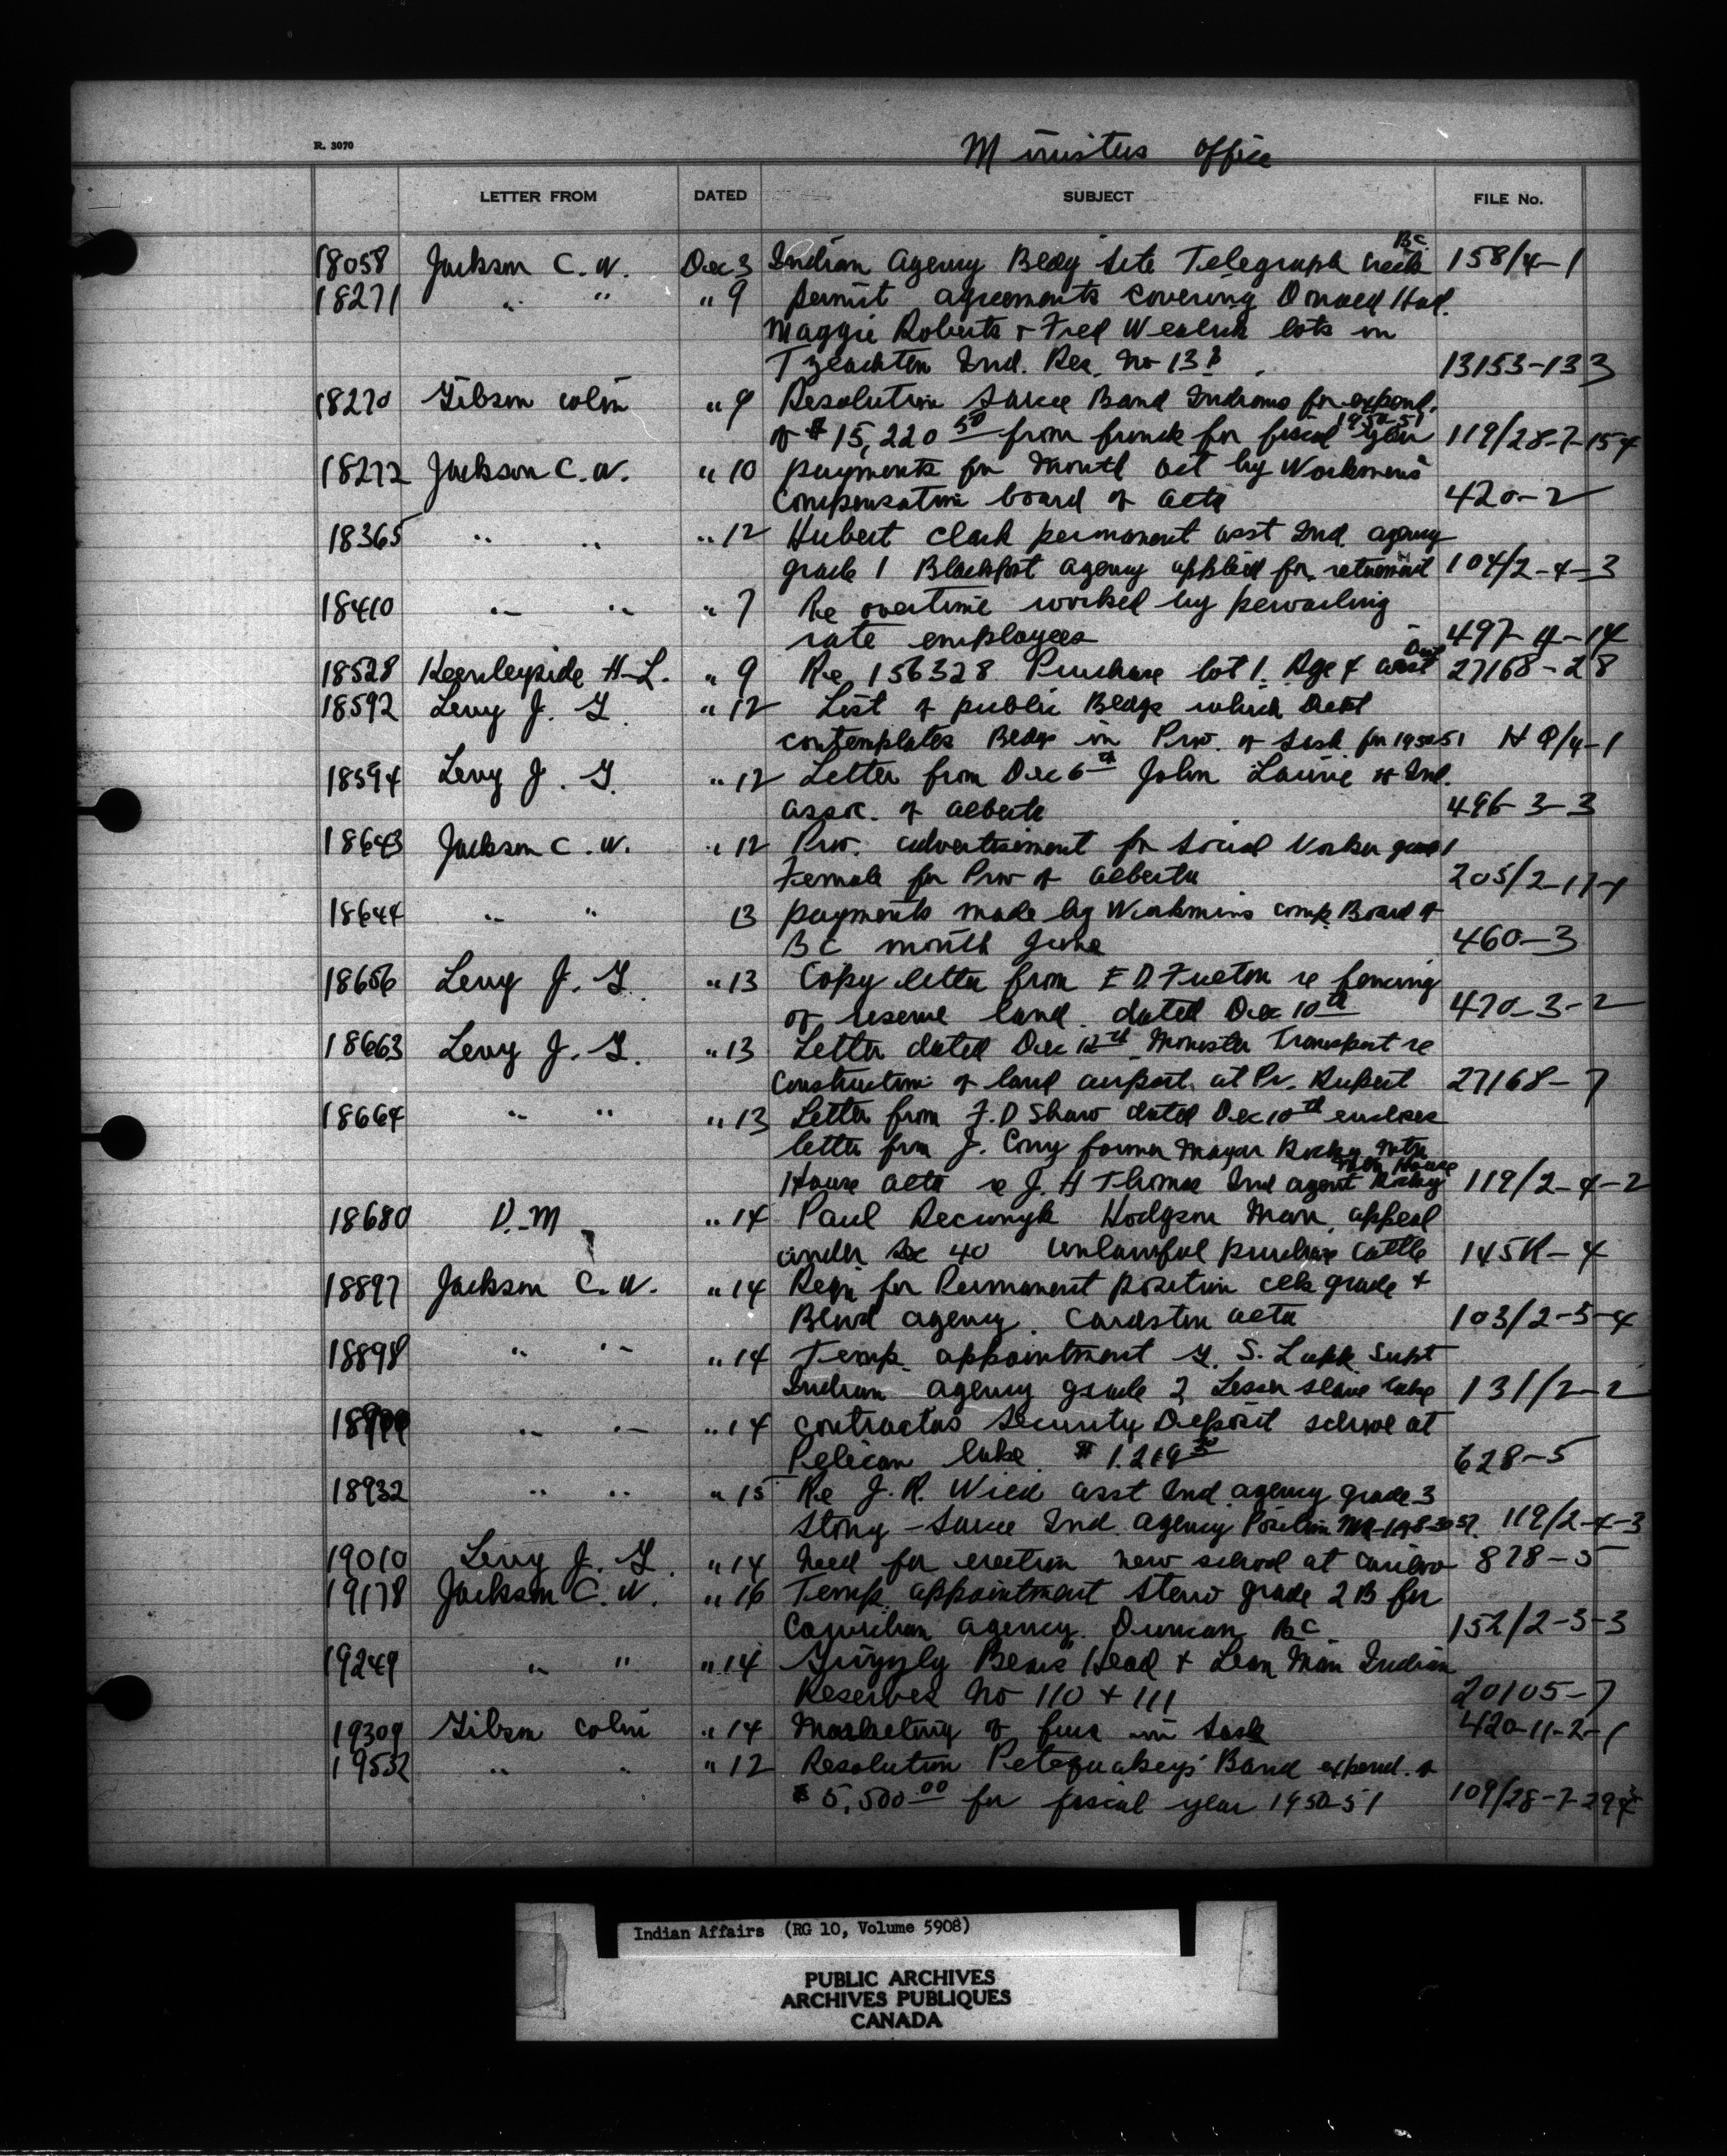 R. 3070
Ministers office
LETTER FROM DATED SUBJECT FILE No.
B.C.
18058 Jackson C. W. Dec 3 Indian Agency Bldg site Telegraph creek 158/4-1
18271 " " " 9 permit agreements covering Hall.
Maggie Roberts & Fred lots in
Tzeachten Ind. Res. No 13 13153-133
18270 Gibson Colin " 9 Resolution Sarcee Band Indians for expend.
1950-51
of $15,220 50 from funds for fiscal year 119/28-7-154
18272 Jackson C. W. " 10 payments for month oct by Workmen's
Compensation board of alta 420-2
18365 " " " 12 Hubert Clark permanent asst Ind. agency
grade 1 Blackfoot agency applied for retirement 104/2-4-3
18410 " " " 7 Re overtime worked by prevailing
rate employees 497-4-14
18528 Keenleyside H-L. " 9 Re 156328 Purchase lot 1. 27168-28
18592 Levy J. G. " 12 List of public Bldgs which Dept
contemplates Bldgs in Prov. of Sask. for 1950 51 H Q/4-1
18594 Levy J. G. " 12 Letter from Dec 6th John Laurie of Ind.
assoc. of alberta 496-3-3
18643 Jackson C. W. " 12 Prov. advertisement for Social Worker grade 1
Female for Prov of alberta 205/2-17-1
18644 " " 13 payments made by Workmins comp. Board of
BC month June 460-3
18656 Levy J. G. " 13 Copy letter from E D Fulton re fencing
of reserve land. dated Dec 10th 470-3-2
18663 Levy J. G. " 13 Letter dated Dec 12th Minister Transport re
construction of land airport at Pr. Rupert 27168-7
18664 " " " 13 Letter from F. D Shaw dated Dec 10th encloses
letter from J. former Mayor Rocky Mtn
Mtn House
House alta re J. H Thomas Ind agent Rocky 119/2-4-2
18680 D.-M " 14 Paul Hodgson Man. appeal
under Sec 40 unlawful purchase cattle 145K-4
18897 Jackson C. W. " 14 Reqn for Permanent position clk grade 4
Blood agency. Cardston alta 103/2-5-4
18898 " " " 14 Temp. appointment G. S. Lapp Supt
Indian agency grade 2 Lesser slave lake 131/2-2
" " " 14 contractors Security Deposit school at
Pelican lake. 628-5
18932 " " " 15 Re J. R. Wild asst Ind. agency grade 3
Stony - Sarcee Ind. agency Position 119/2-4-3
19010 Levy J. G. " 14 Need for erection new school at cariboo 878-5
19178 Jackson C. W. " 16 Temp. appointment steno grade 2 B for
Cowichan agency. Duncan BC 152/2-3-3
19249 " " " 14 Grizzly Bears Head & Lean Man Indian
Reserves No 110 & 111 20105-7
19309 Gibson Colin " 14 Marketing of furs in Sask 420-11-2-1
19552 " " " 12 Resolution Petequakey's Band expend. of
$5,500 00 for fiscal year 1950-51 109/28-7-
Indian Affairs (RG 10, Volume 5908)
PUBLIC ARCHIVES
ARCHIVES PUBLIQUES
CANADA